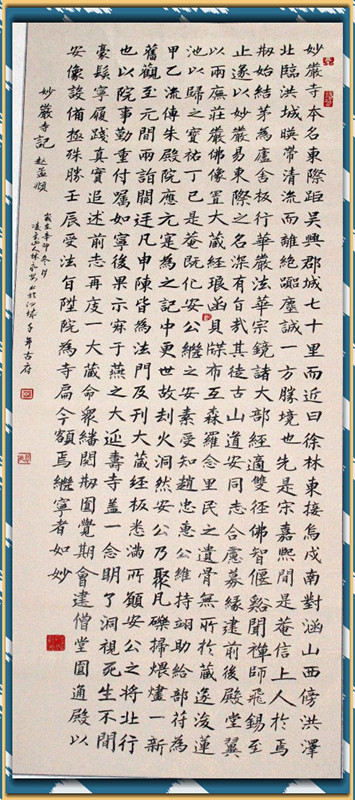 妙嚴寺本名東際距吳興郡城七十里而近曰徐林東接烏戍南對涵山西傍洪澤
北臨洪城暎帶清流而離絕囂塵誠一方勝境也先是宋嘉熙間是菴信上人於焉
刱始結茅為廬舍板行華嚴法華宗鏡諸大部經適雙徑佛智偃谿聞禪師飛錫至
止遂以妙嚴易東際之名深有旨哉其徒古山道安同志合慮募緣建前後殿堂翼
以兩廡莊嚴佛像置大藏經琅函貝牒布互森羅念里民之遺骨無所於藏遂浚蓮
池以歸之寶祐丁巳是菴旣化安公繼之安素受知趙忠惠公維持翊助給部符為
甲乙流傳朱殿院應元寔為之記中更世故刼火洞然安公乃聚凡礫掃煨燼一新
舊觀至元間兩詣闕廷凡申陳皆為法門及刊大藏經板悉滿所願安公之將北行
也以院事勤重付囑如寧後果示寂于燕之大延壽寺盖一念明了洞視死生不間
豪髮寧履踐真實追述前志再度一大藏命衆繙閱刱圓覺期會建僧堂圓通殿以
安像設備極殊勝壬辰受法旨陞院為寺扁今額焉繼寧者如妙
妙嚴寺記 趙孟頫